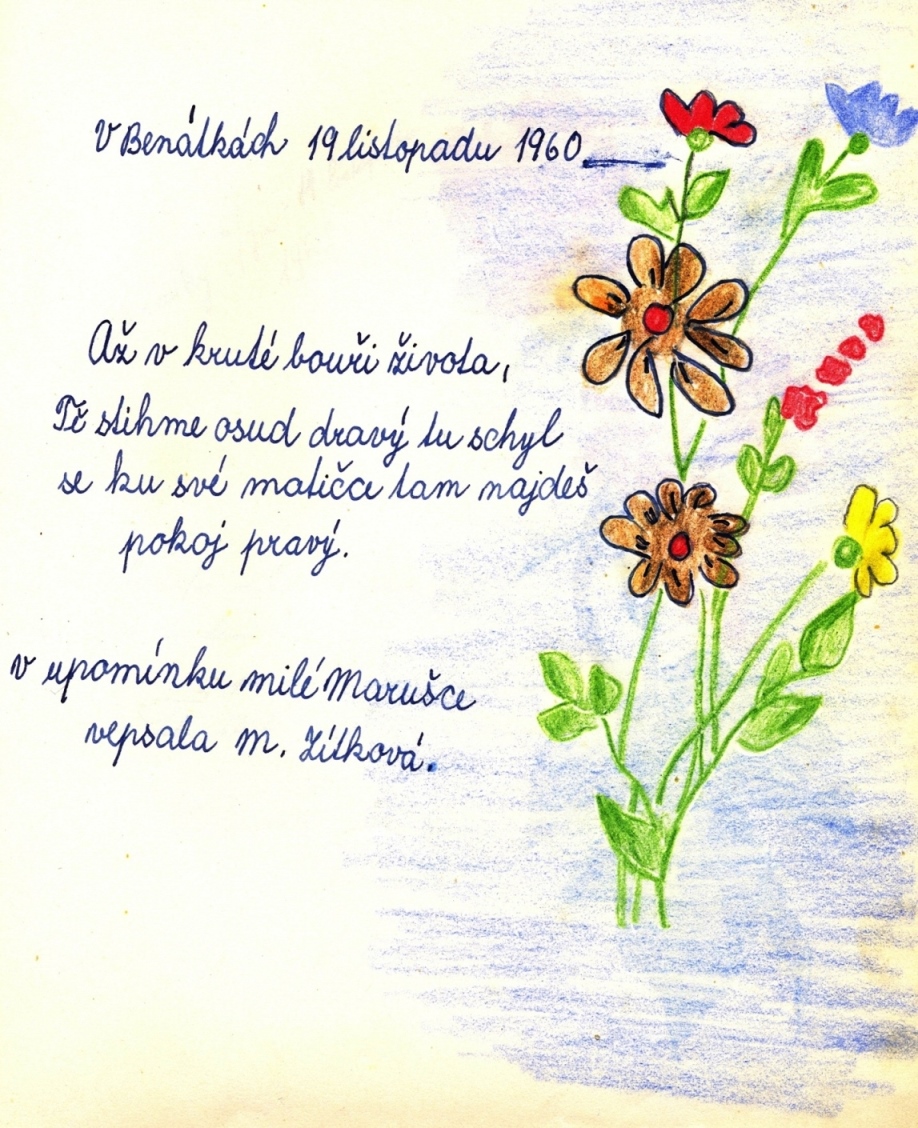 V Benátkách 19 listopadu 1960
Až v kruté bouři života,
Tě stihme osud dravý tu schyl
se ku své matičce tam najdeš
pokoj pravý.
v upomínku milé Marušce
vepsala M. Zítková.